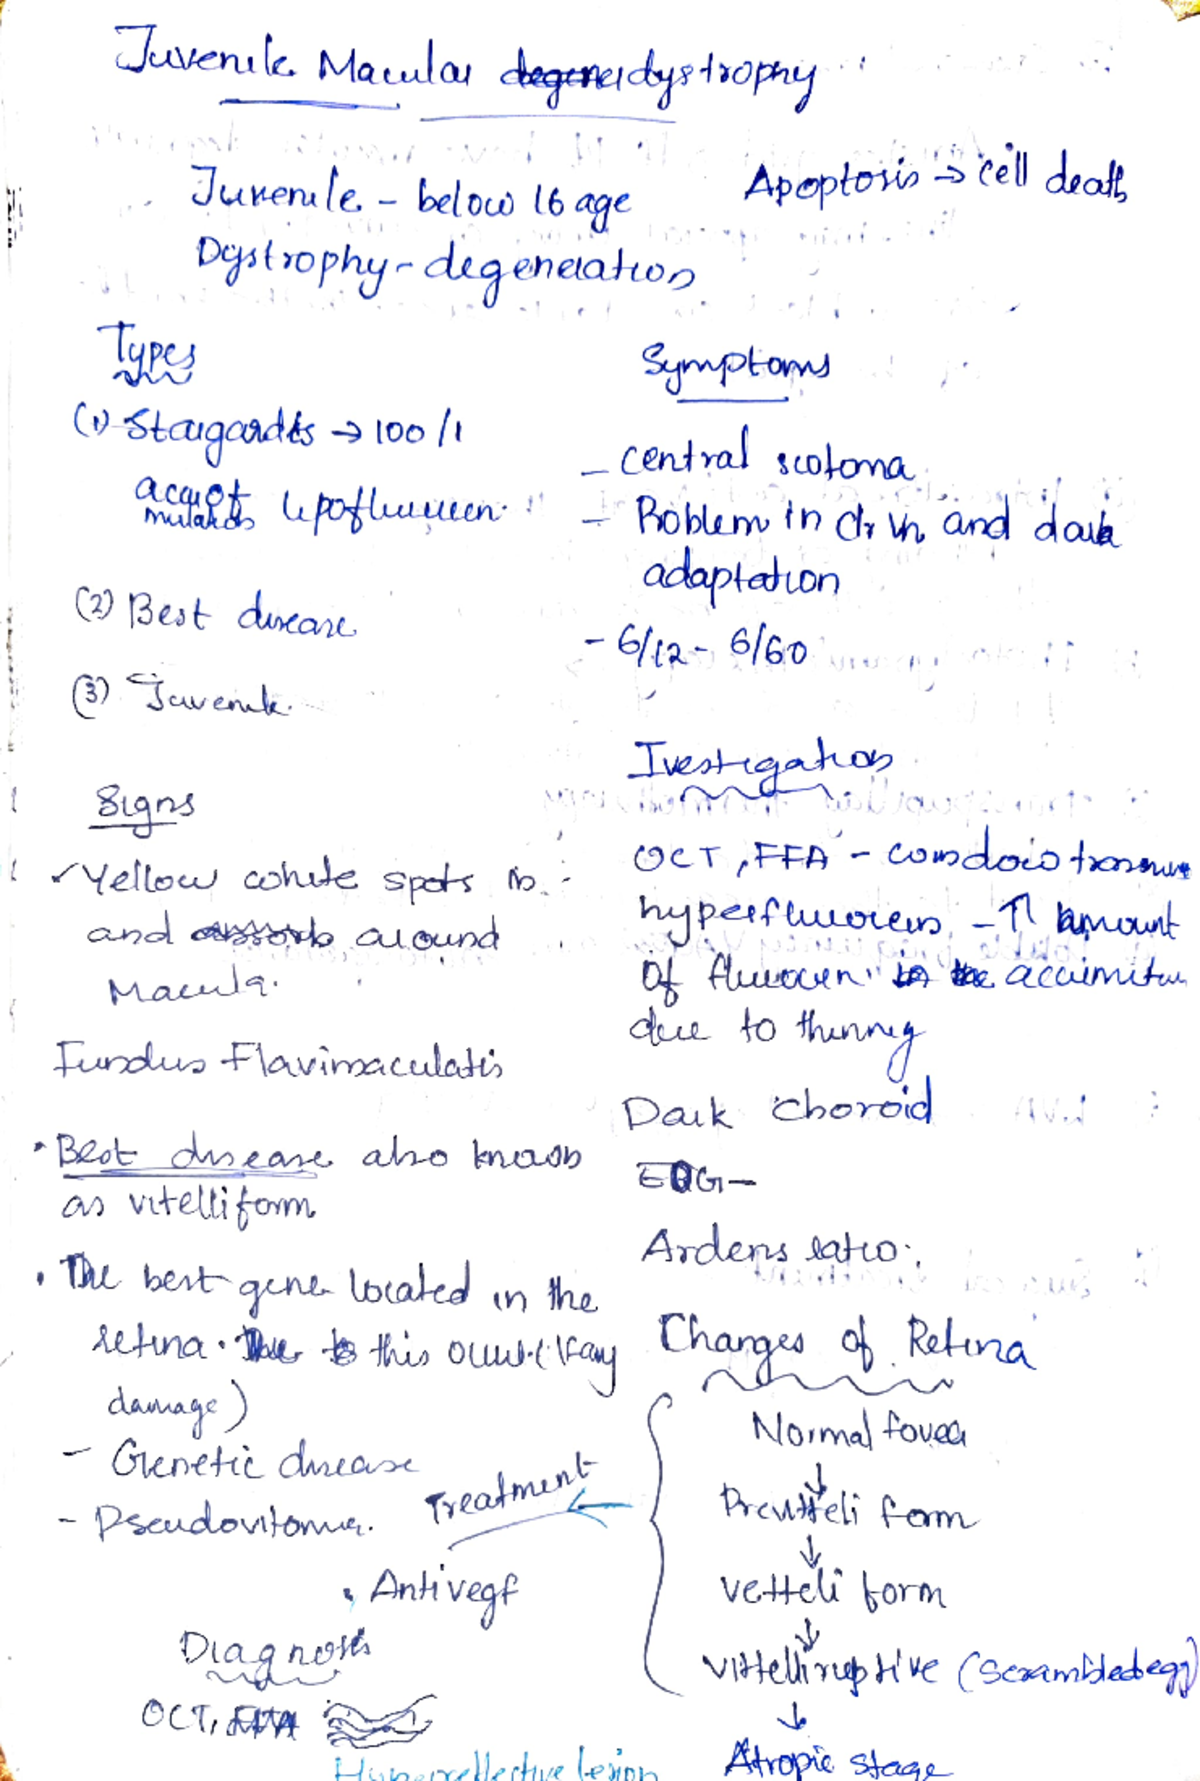 Juvenile Macular dystrophy
Juvenile - below 16 age
Apoptosis → cell death
Dystrophy - degeneration
Types
(1) Stargardts → 100/1
lipofluuscen
(2) Best disease
(3) Juvenile
Signs
✓ Yellow white spots in
and around
Macula.
Fundus Flavimaculatis
• Best disease also known
as vitelliform
• The best gene located in the
retina. Due to this occur (if any
damage)
- Genetic disease
- Pseudovitoma.
Treatment
• Antivegf
Diagnosis
OCT, FFA
Hyperreflective lesion
Symptoms
- Central scotoma
- Problem in clr vn and dark
adaptation
- 6/12 - 6/60
Ivestigation
OCT, FFA -
hyperfluorocens - ↑ amount
Of
due to thinning
Dark Choroid
EOG -
Ardens ratio.
Changes of Retina
Normal fovea
↓
Previtteli form
↓
Vetteli form
↓
Vittelliruptive (Scrambled egg)
↓
Atropic stage